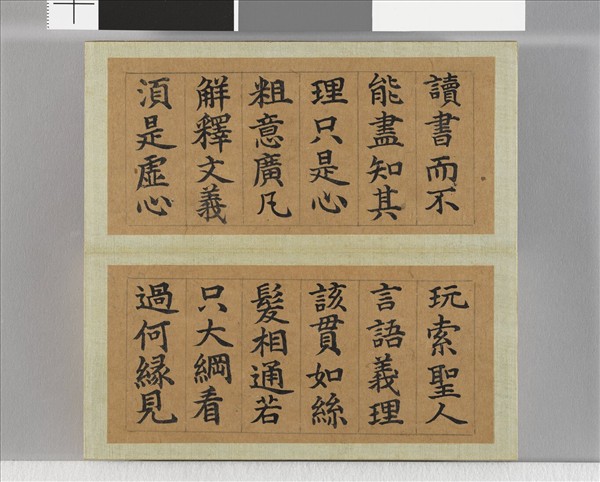 讀書而不
能盡知其
理只是心
粗意廣凡
解釋文義
湏是虛心
玩索聖人
言語義理
該貫如絲
髮相通若
只大綱看
過何緣見